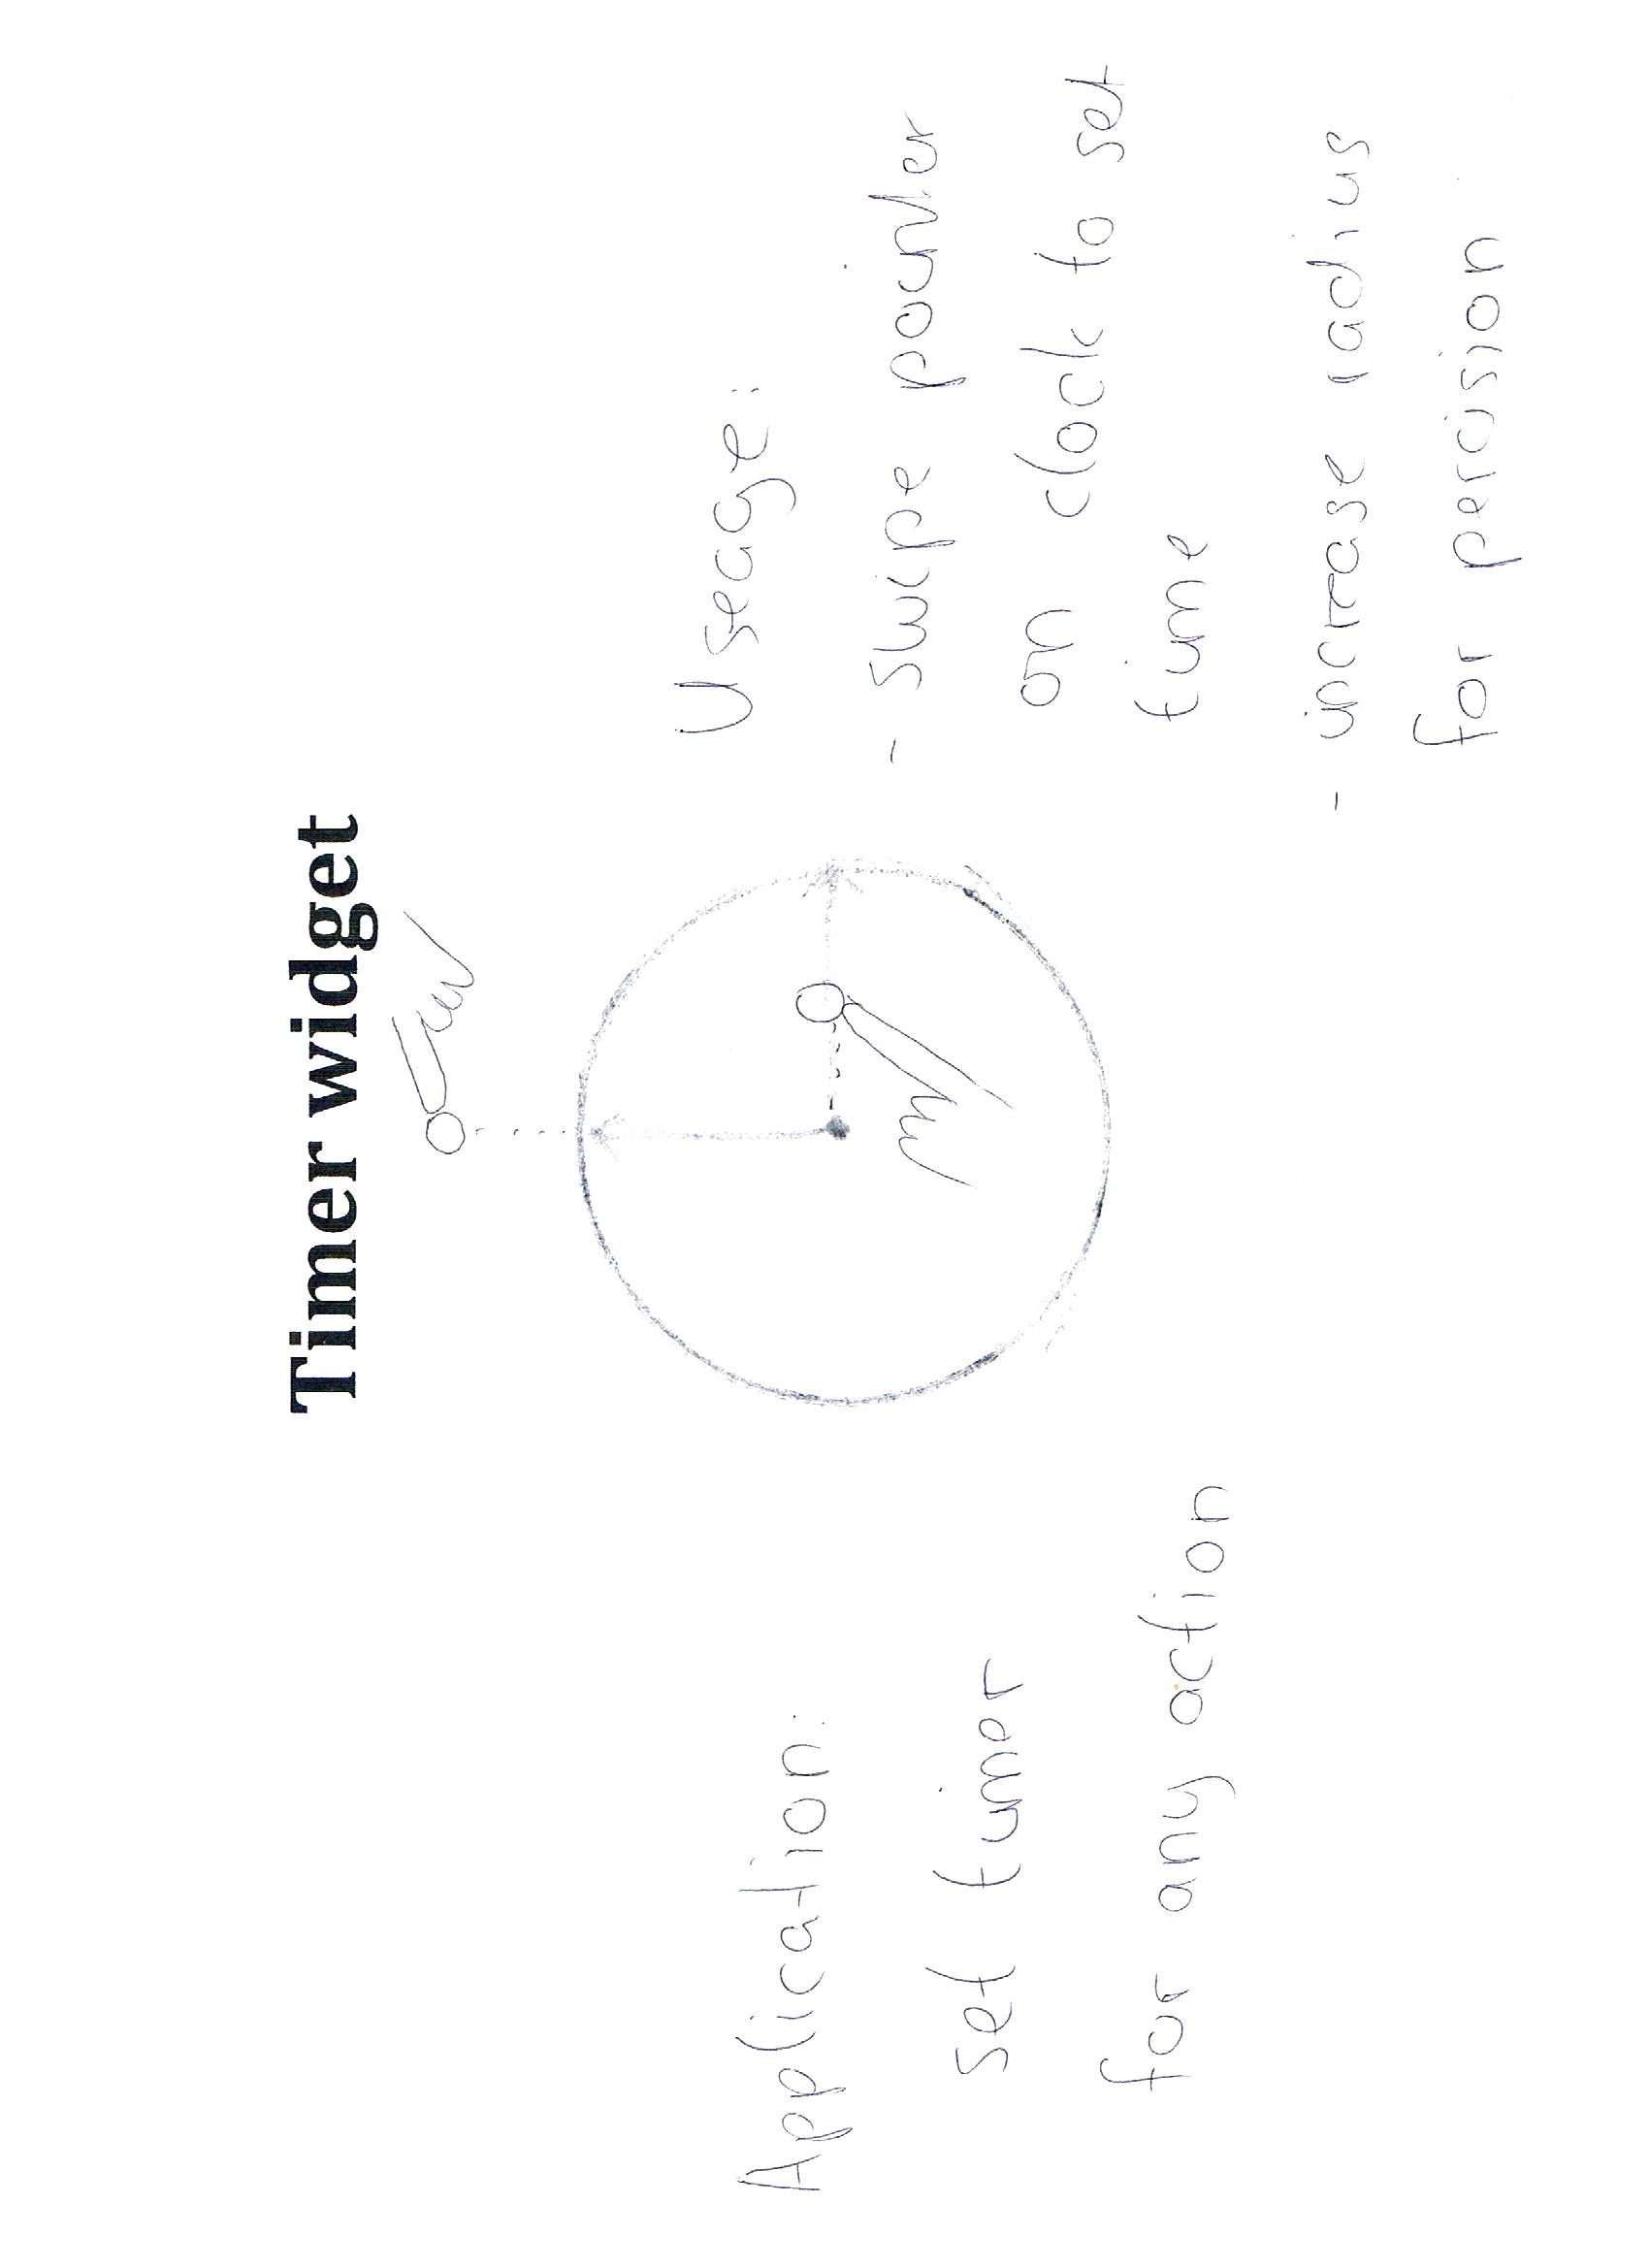 Timer widget
Application:
set timer
for any action
Useage:
- swipe pointer
on clock to set
time
- increase radius
for percision